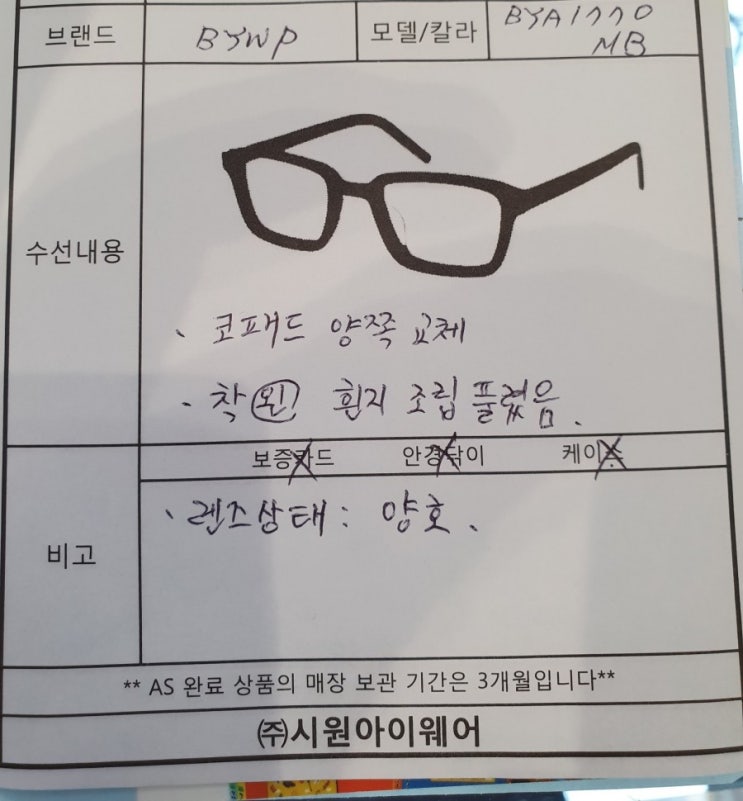 브랜드 BYWP 모델/칼라 BYA1770 MB
수선내용
· 코패드 양쪽 교체
· 착 왼 흰지 조립 풀렸음.
보증카드 안경닦이 케이스
비고
· 렌즈상태: 양호.
** AS 완료 상품의 매장 보관 기간은 3개월입니다**
㈜시원아이웨어